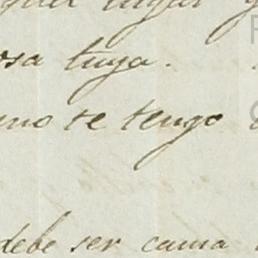 lugar
osa tuya.
no te tengo
debe ser cama